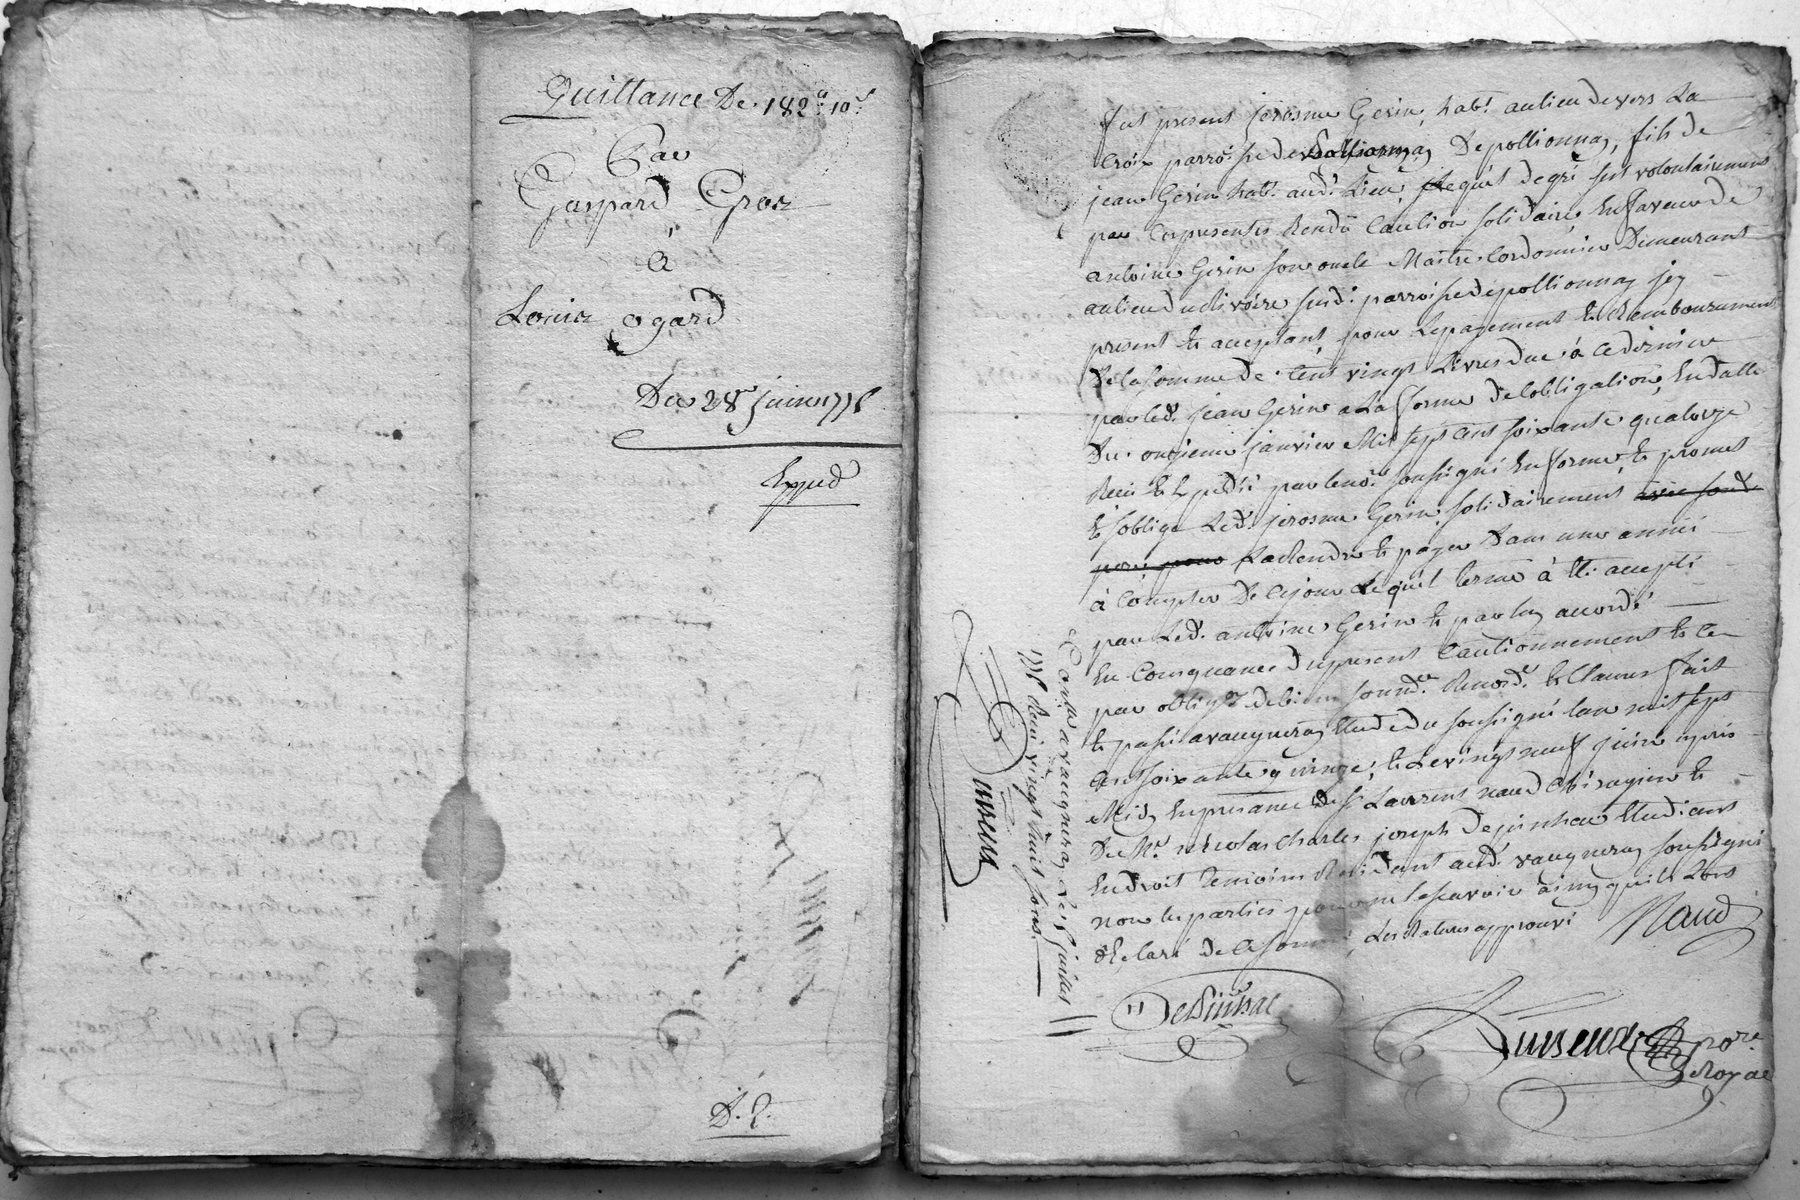 Quittance De 182ᵗᵗ 10ˢ
Par
Gaspard Groz
à
Louis ogard
Du 28ᵉ juin 1775
Expéd
D. 2.
fut present jerosme Gerin, habt. au lieu de vers La
Croix parroisse de Depollionnay, fils de
jean Gerin habt. audt. Lieu, Lequel de gré sest volontairement
par Ces presentes Rendu Caution solidaire En faveur de
antoine Gerin son oncle Maitre Cordonnier Demeurant
au lieu susdt. parroisse depollionnay jcy
present Et acceptant, pour Lepayement Et Remboursement
De la somme de Cent vingt Livres due à Ce dernier
par led. jean Gerin a La forme De lobligation En datte
Du onzieme janvier Mil sept Cent soixante quatorze
Receu Et Expedié par le nore. soussigné En forme, Et promet
Et soblige Led. jerosme Gerin solidairement avec sond.
pere pour La Rendre Et payer Dans une année
à Compter De Ce jour Lequel terme à Eté accepté
par Led. antoine Gerin Et par luy accordé
En Consequance du present Cautionnement Et Ce
par obligon. de biens soumon. Renond. Et Clauses fait
Et passé a vaugneray Etude du soussigné lan mil sept
Cent soixante quinze, Et Le vingt neuf juin après
Midy En presance de sr. Laurent naud Chirurgien Et
De Mr. nicolas Charles joseph Etudiant
En droit Temoins Residant audt. vaugneray soussigné
non les parties pour ne le scavoir ainsy quils Lont
declaré de Ce sommé, Les Ratures approuvé
Naud
nore.
Royal
Contl. a vaugneray Le juillet
1775 Receu vingt huit sous.